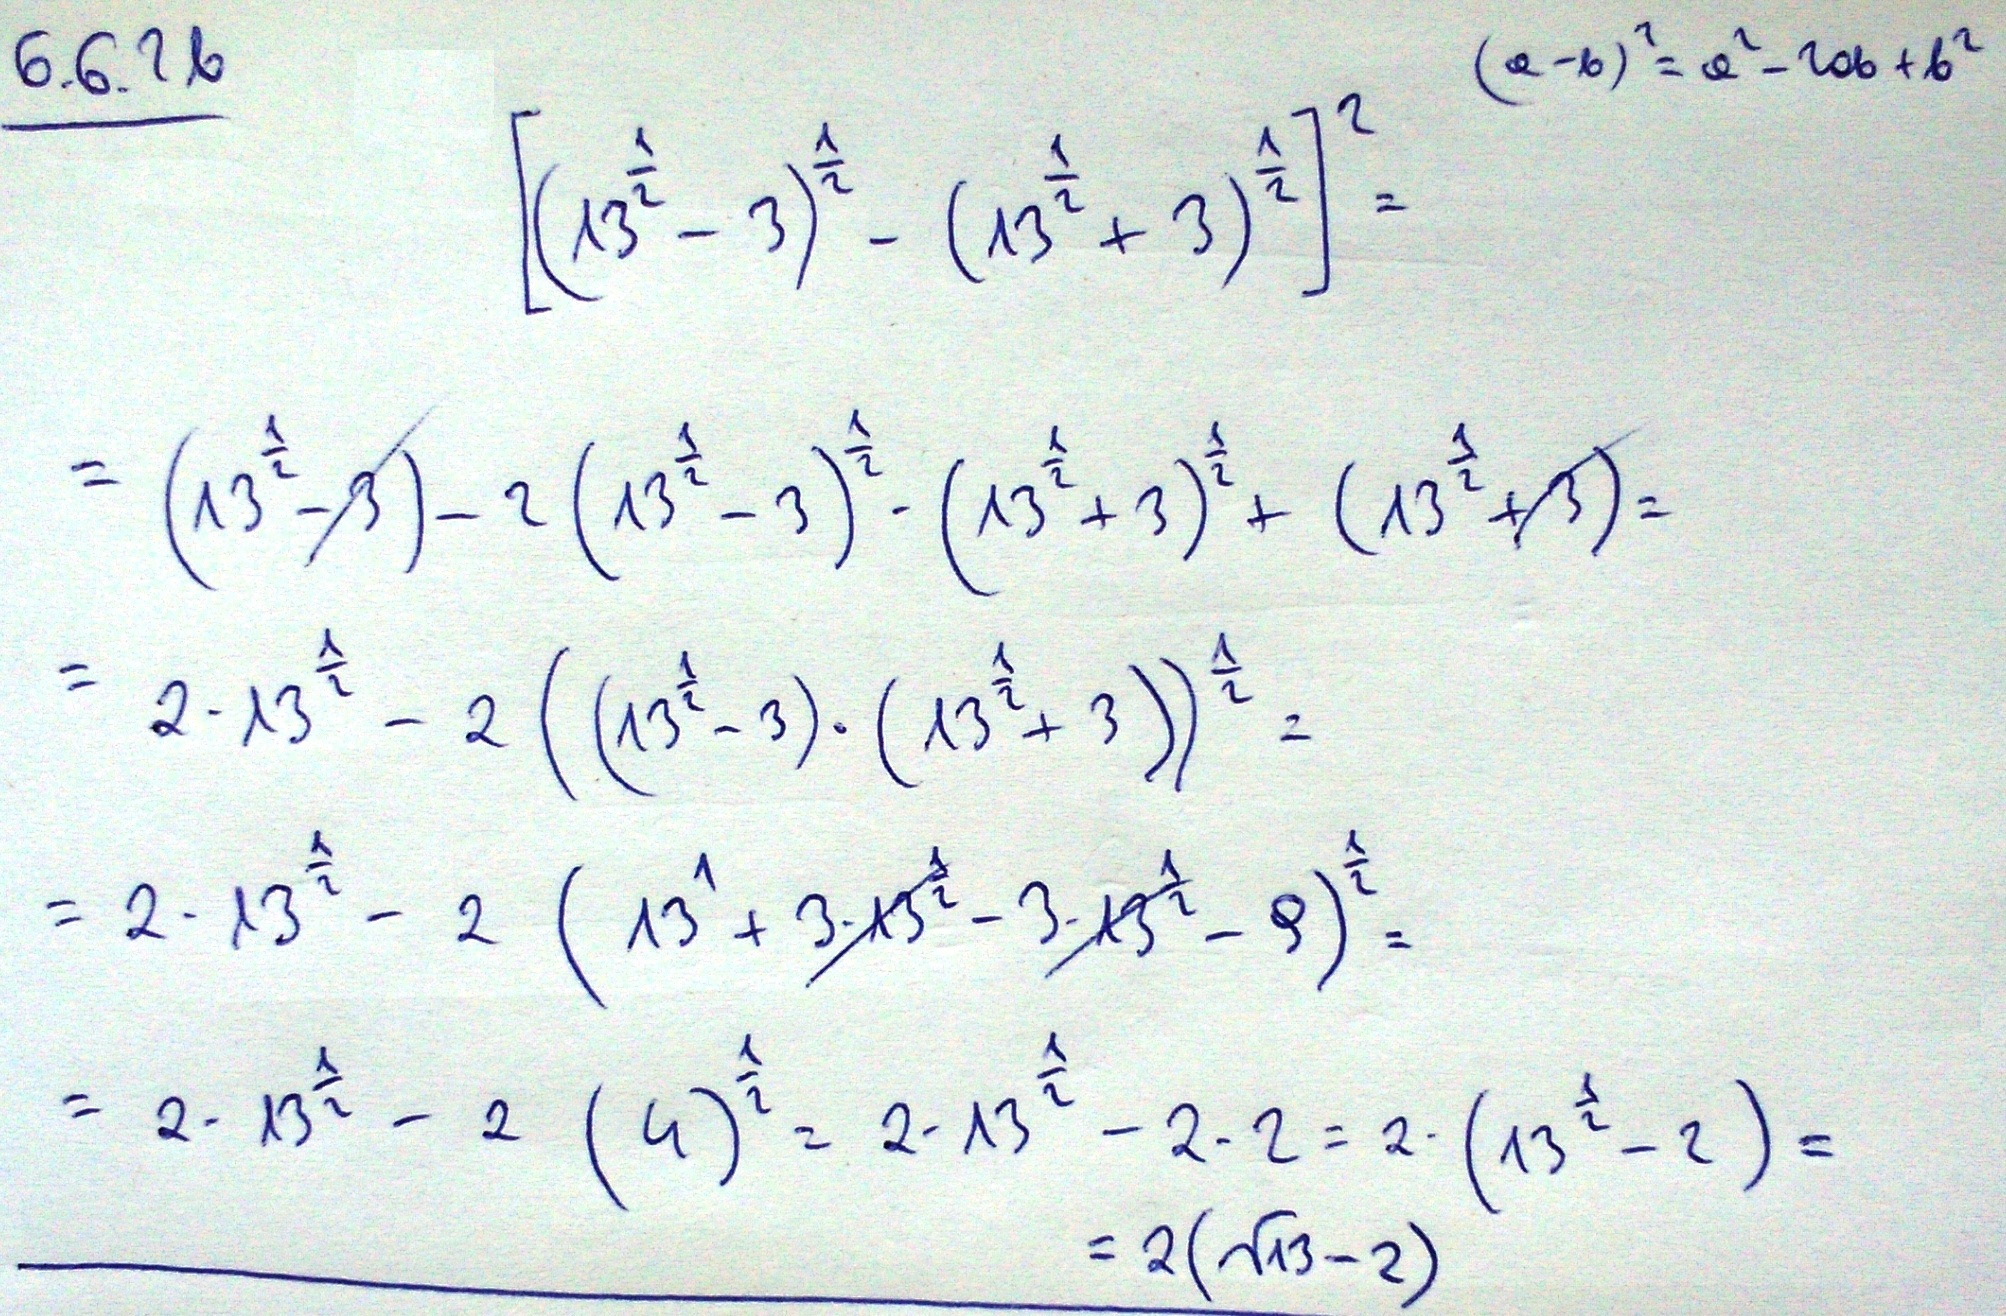 6.6.2b
(a-b)² = a² - 2ab + b²
[(13^{1/2} - 3)^{1/2} - (13^{1/2} + 3)^{1/2}]² =
= (13^{1/2} - 3) - 2(13^{1/2} - 3)^{1/2} · (13^{1/2} + 3)^{1/2} + (13^{1/2} + 3) =
= 2·13^{1/2} - 2((13^{1/2} - 3)·(13^{1/2} + 3))^{1/2} =
= 2·13^{1/2} - 2(13¹ + 3·13^{1/2} - 3·13^{1/2} - 9)^{1/2} =
= 2·13^{1/2} - 2(4)^{1/2} = 2·13^{1/2} - 2·2 = 2·(13^{1/2} - 2) =
= 2(√13 - 2)